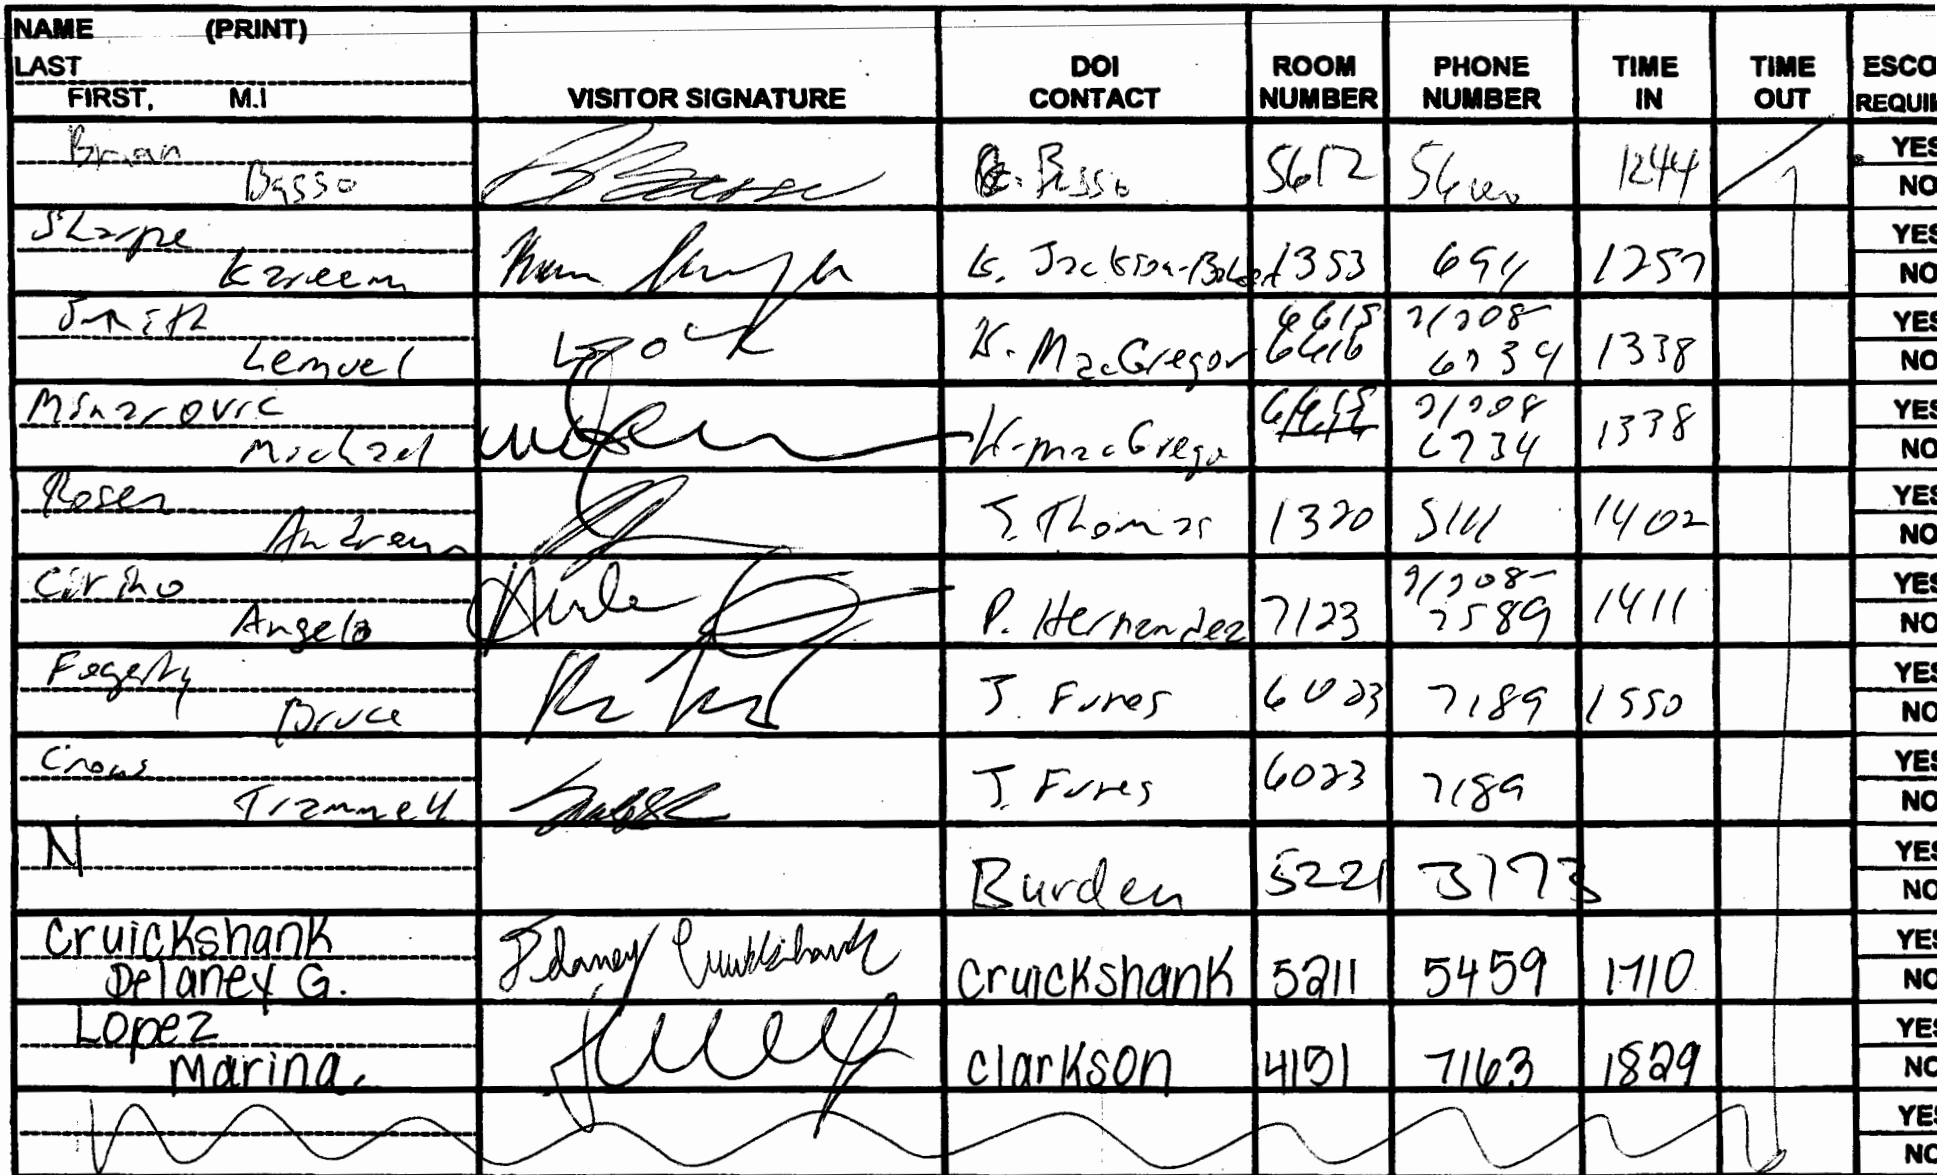 NAME (PRINT)
LAST
FIRST, M.I
VISITOR SIGNATURE
DOI CONTACT
ROOM NUMBER
PHONE NUMBER
TIME IN
TIME OUT
ESCO
REQUIR
Brian
Basso
B. Basso 5612 1244
YES
NO
Sharpe
Kareem
K. Jackson- 1353 694 1257
YES
NO
Smith
Lemuel
K. MacGregor 6615 6616 2/208- 6734 1338
YES
NO
Michael
K. MacGrego 2/208 6734 1338
YES
NO
Rosen
Andrew
T. Thomas 1320 5111 1402
YES
NO
Cirino
Angelo
P. Hernandez 7123 2/208- 7589 1411
YES
NO
Fegerty
Bruce
J. Funes 6023 7189 1550
YES
NO
Crows
Trammell
J. Funes 6023 7189
YES
NO
N
Burden 5221 3773
YES
NO
Cruickshank
Delaney G.
Delaney Cruickshank
Cruickshank 5211 5459 1710
YES
NO
Lopez
Marina
Clarkson 4151 7163 1829
YES
NO
YES
NO